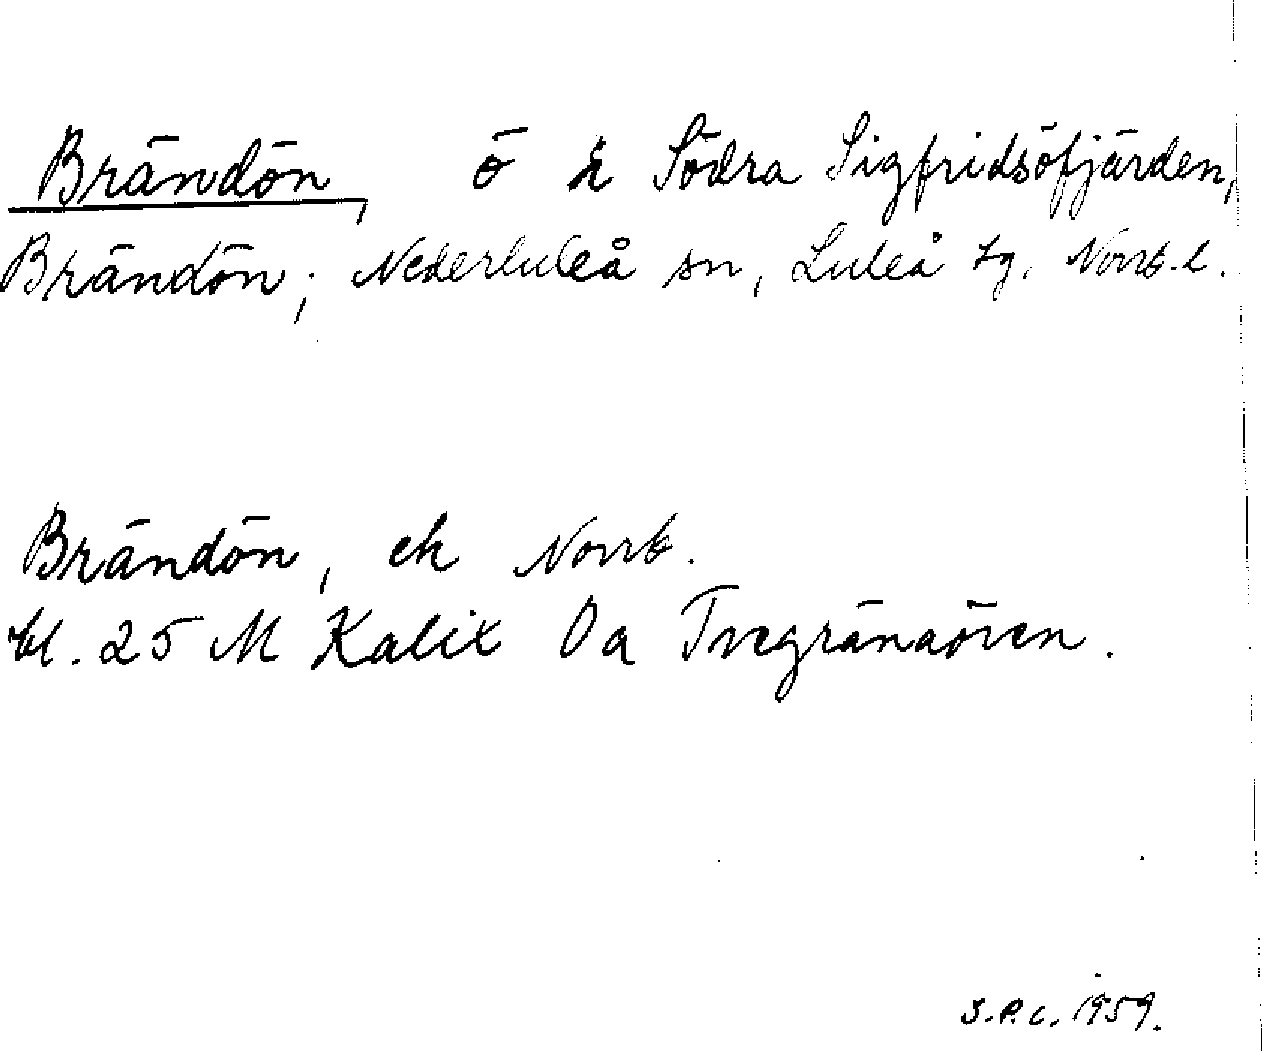 Brändön, ö i Södra Sigfridsöfjärden,
Brändön; Nederluleå sn, Luleå tg. Norrb.l.
Brändön, ek Norrb.
bl. 25 M Kalix Oa Tvegränaören.
S.P.C. 1959.